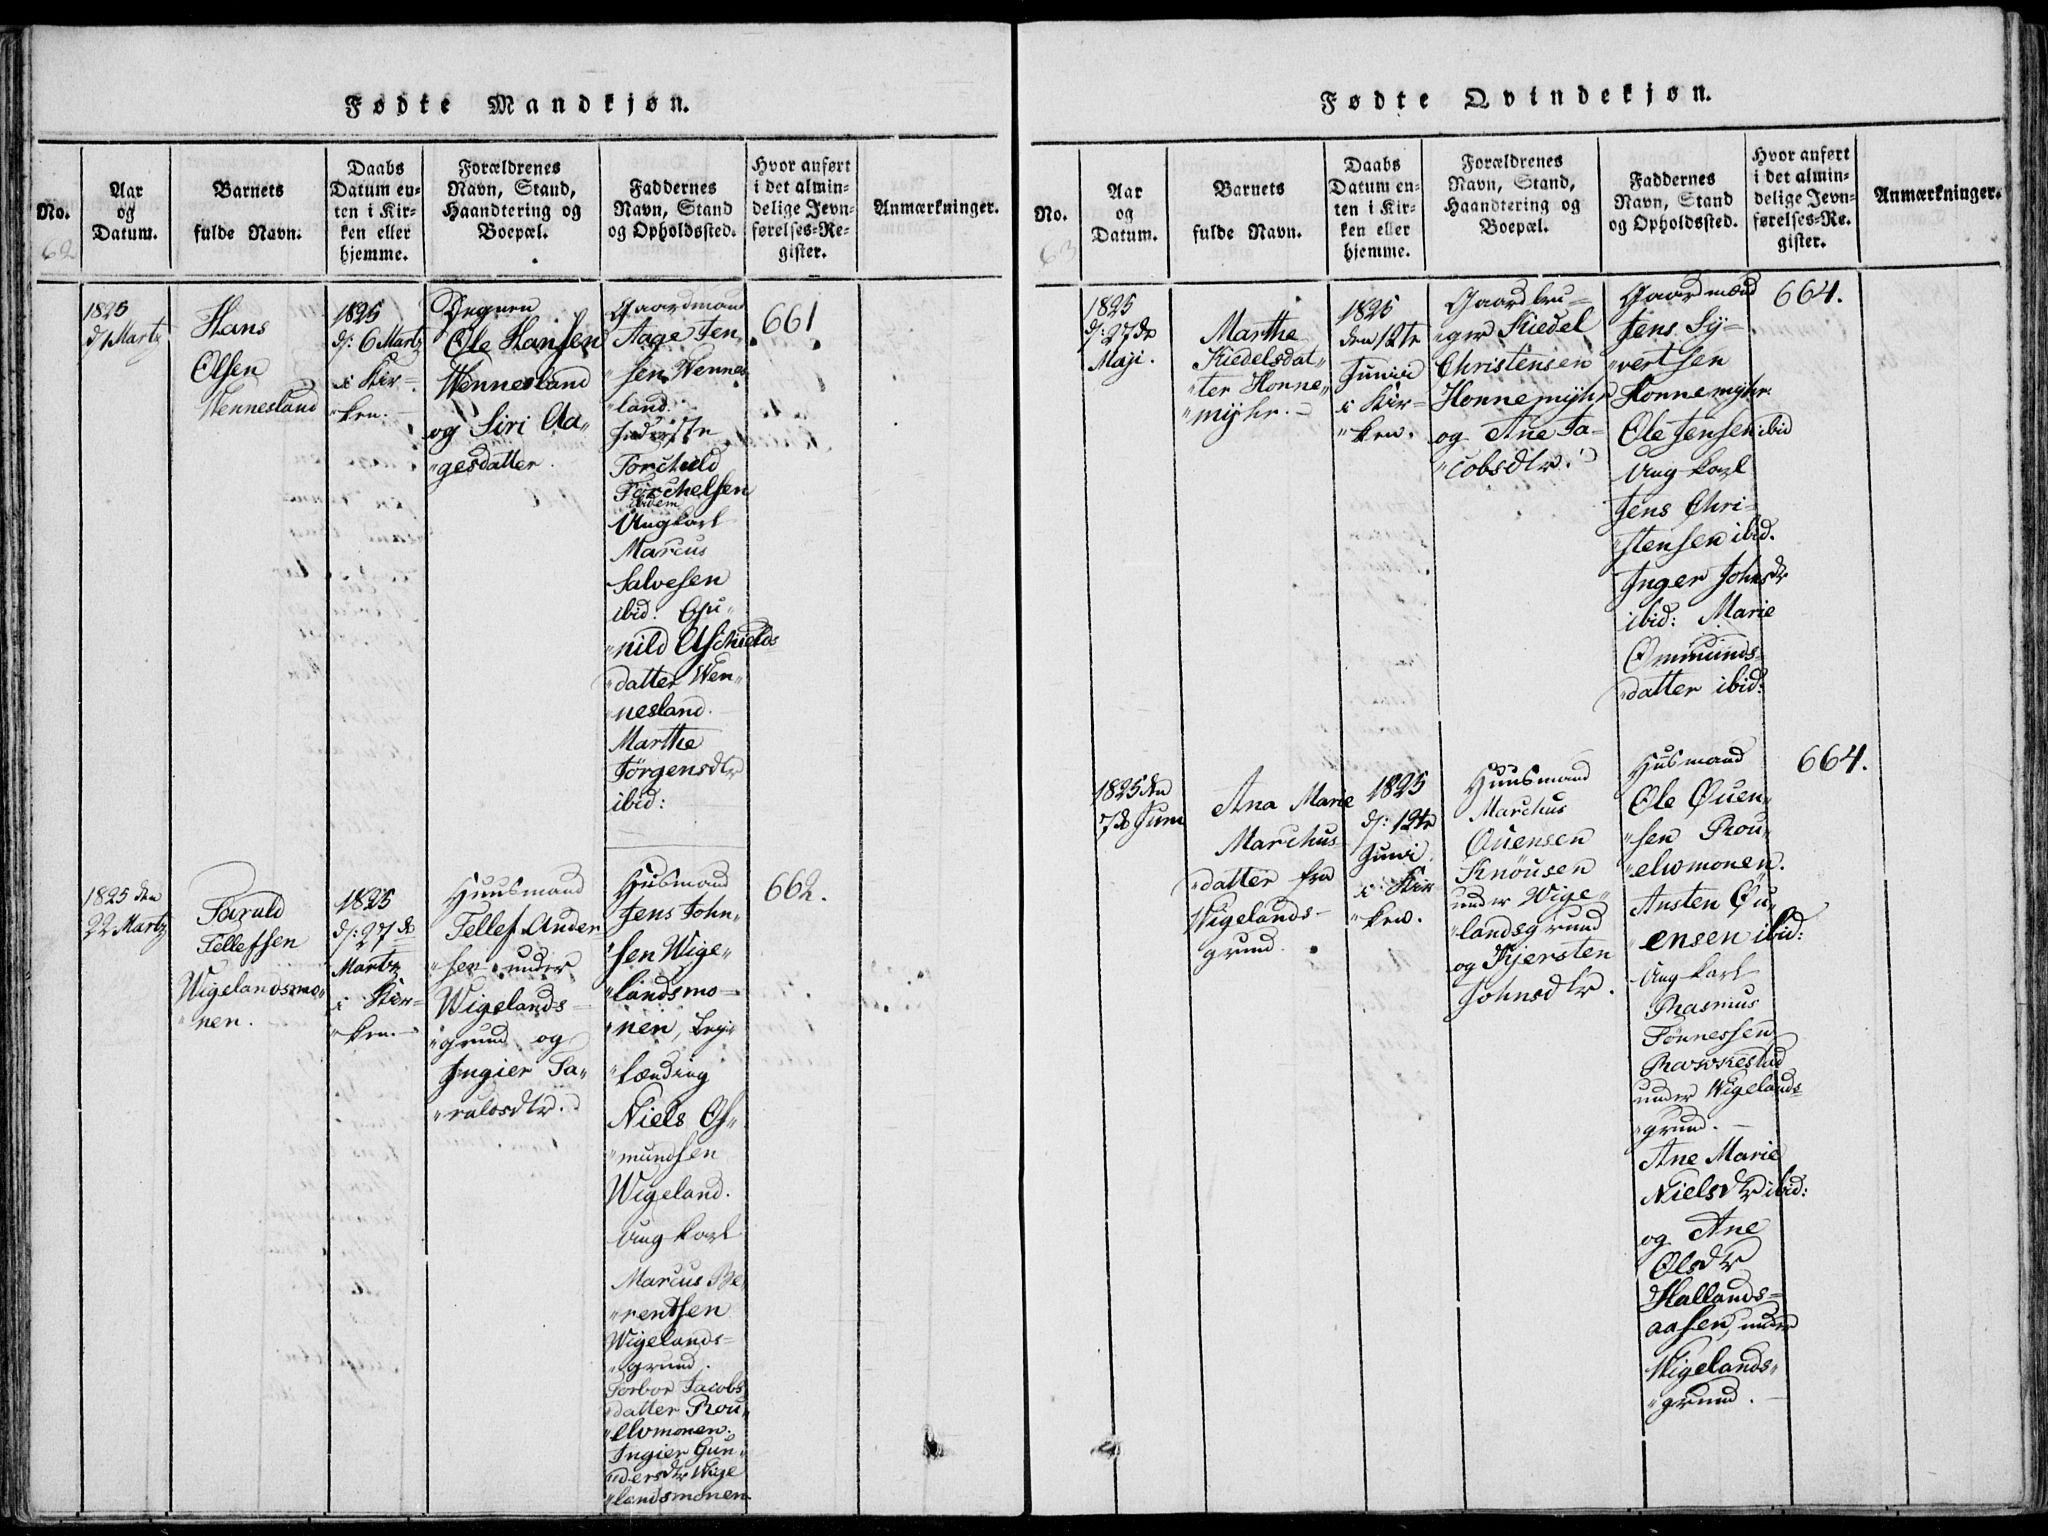 Fødte Mandkjøn.
No.
Aar
og
Datum.
Barnets
fulde Navn.
Daabs
Datum en-
ten i Kir-
ken eller
hjemme.
Forældrenes
Navn, Stand,
Haandtering og
Boepæl.
Faddernes
Navn, Stand
og Opholdssted.
Hvor anført
i det almin-
delige Jevn-
førelses-Re-
gister.
Anmærkninger.
62
1825
d/1 Martz
Hans
Olsen
Wennesland
1825
d/: 6 Martz
i Kir-
"ken.
Degnen
Ole Hansen
Wennesland
og Siri Aa"
"gesdatter.
Gaardmand
Aage Jen
"sen Wennes
"land.
Torchild
Torchelsen
ibidem
Ungkarl
Marcus
Salvesen
ibid. Gu"
"nild
datter Wen"
"nesland.
Marthe
Jörgensdtr
ibid:
661
1825 den
22 Martz
Tarald
Tellefsen
Wigelandsmo"
"nen.
1825
d/: 27de
Martz
i Kir-
"ken.
Huusmand
Tellef Ander
"sen under
Wigelands-
"grund og
Ingier Ta"
"raldsdtr.
Husmand
Jens John"
"sen Wige"
"landsmo-
"nen,
Niels
"mundsen
Wigeland.
Ungkarl
Marcus Be"
"rentsen
Wigelands-
"grund.
Torbor Jacobs
"datter Rou"
"elvmonen.
Ingier Gun"
"dersdtr Wige
"landsmonen
662.
Fødte Qvindekjøn.
No.
Aar
og
Datum.
Barnets
fulde Navn.
Daabs
Datum en-
ten i Kir-
ken eller
hjemme.
Forældrenes
Navn, Stand,
Haandtering og
Boepæl.
Faddernes
Navn, Stand
og Opholdssted.
Hvor anført
i det almin-
delige Jevn-
førelses-Re-
gister.
Anmærkninger.
63
1825
d/: 27de
Maji.
Marthe
Kiedelsdat"
"ter Honne"
"myhr.
1825
den 12te
Junii
i Kir-
"ken.
Gaardbru-
"ger Kiedel
Christensen
Honnemyhr
og Ane Ja-
"cobsdtr.
Gaardmænd
Jens Sy-
"vertsen
Honnemyhr.
Ole Jensen ibid
Ungkarl
Jens Chri-
"stensen ibid.
Inger Johnsdtr
ibid: Marie
Ommunds-
"datter ibid:
664.
1825 den
7de Juni
Ana Marie
Marchus-
"datter fra
Wigelands-
grund.
1825
d/: 12te
Junii.
i Kir
"ken.
Huusmand
Marchus
Ouensen
Knöusen
under Wige"
"landsgrund
og Kjersten
Johnsdtr.
Husmand
Ole Ouen"
"sen Rou"
"elvmonen.
Austen Ou"
"ensen ibid:
Ungkarl
Rasmus
Tönnessen
under Wigelands-
"grund.
Ane Marie
Nielsdtr ibid:
og Ane
Olsdtr
Hallands-
aasen, under
Wigelands"
"grund.
664.